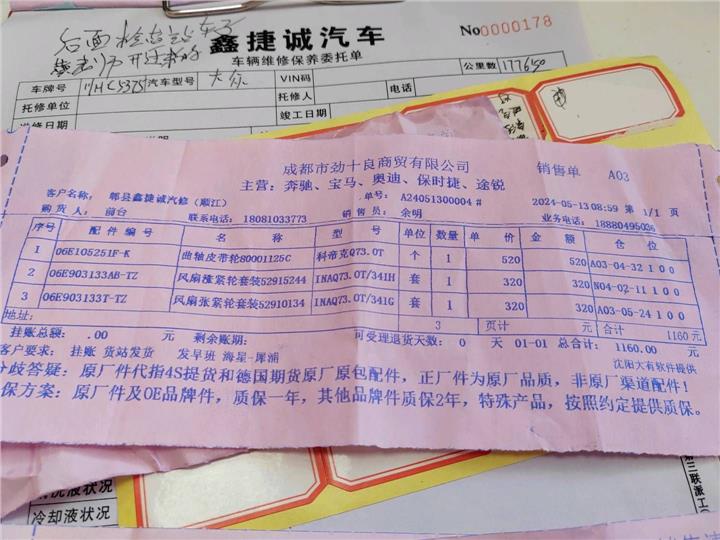 鑫捷诚汽车
No0000178
车辆维修保养委托单
公里数 177650
车牌号 汽车型号 大众 VIN码
托修单位 托修人 电话
送修日期 竣工日期
成都市劲十良商贸有限公司 销售单 A03
主营：奔驰、宝马、奥迪、保时捷、途锐
客户名称： 郫县鑫捷诚汽修（顺江） 单号： A24051300004 # 2024-05-13 08:59 第 1/1 页
购货人： 前台 联系电话： 18081033773 销售员： 余明 业务电话： 18880495036
序号 配件编号 名称 型号 单位 数量 单价 金额 仓位
1 06E105251F-K 曲轴皮带轮80001125C 科帝克Q73.0T 个 1 520 520 A03-04-32 1 0 0
2 06E903133AB-TZ 风扇涨紧轮套装52915244 INAQ73.0T/341H 套 1 320 320 N04-02-11 1 0 0
3 06E903133T-TZ 风扇张紧轮套装52910134 INAQ73.0T/341G 套 1 320 320 A03-05-24 1 0 0
地址： 3 页计 元 合计 1160元
挂账总额： .00 元 剩余账期： 可受理退货天数： 0 天 01-01 总合计： 1160.00 元
客户要求： 挂账 货站发货 发早班 海星-犀浦 沈阳大有软件提供
分歧答疑：原厂件代指4S提货和德国期货原厂原包配件，正厂件为原厂品质，非原厂渠道配件！
保方案：原厂件及OE品牌件，质保一年，其他品牌件质保2年，特殊产品，按照约定提供质保。
洗液状况
冷却液状况
第三联派工